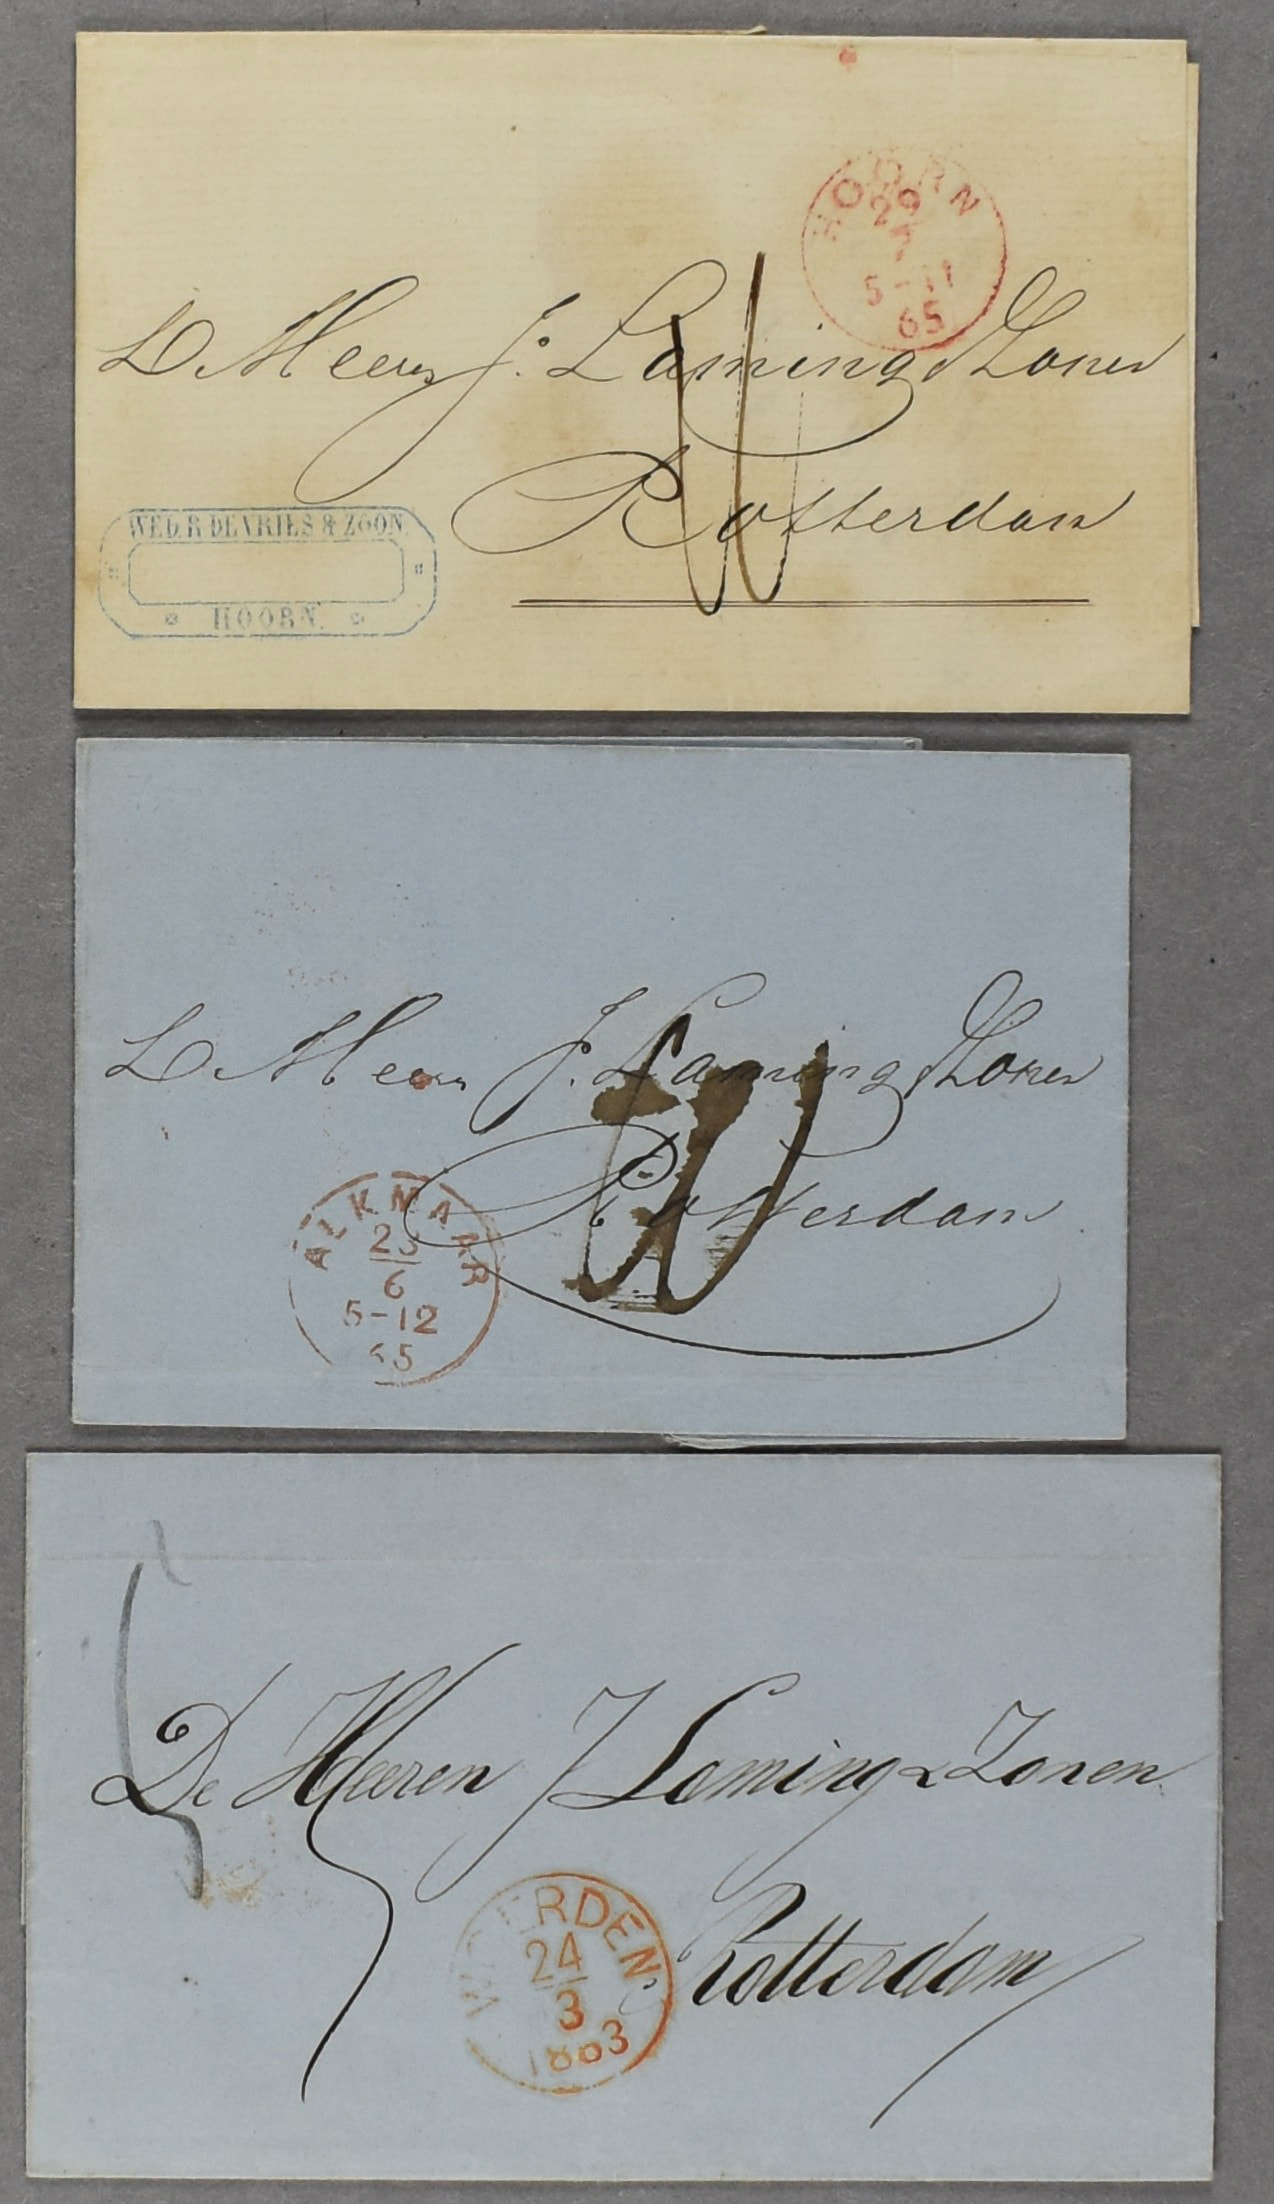 HOORN
29
7
5-11
65
D Heeren J. Laming & Zonen
Rotterdam
WED. R. DE VRIES & ZOON.
HOORN.
D Heeren J. Laming & Zonen
Rotterdam
ALKMAAR
6
5-12
65
5
De Heeren J Laming & Zonen
WOERDEN
24
3
1863
Rotterdam